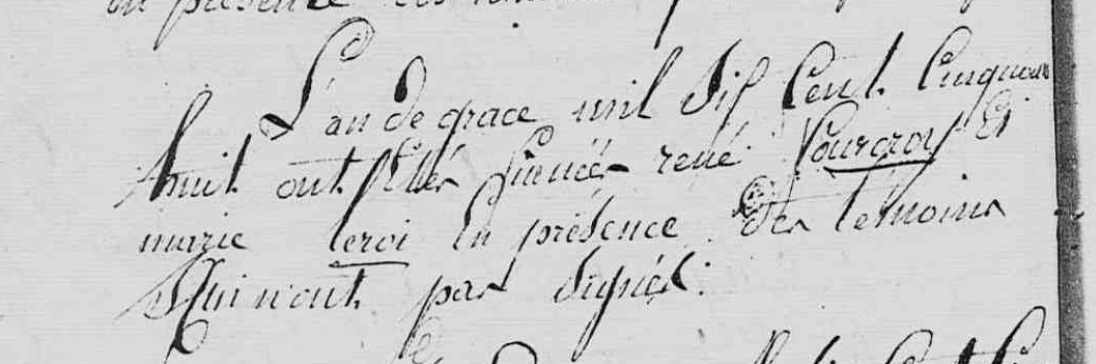 en présence des temoins
L'an de grace mil Sif Cent Cinquan
huit ont Etés fiencés rené fourcroy Et
marie leroi En présence des temoins
Qui n'ont par Signés.